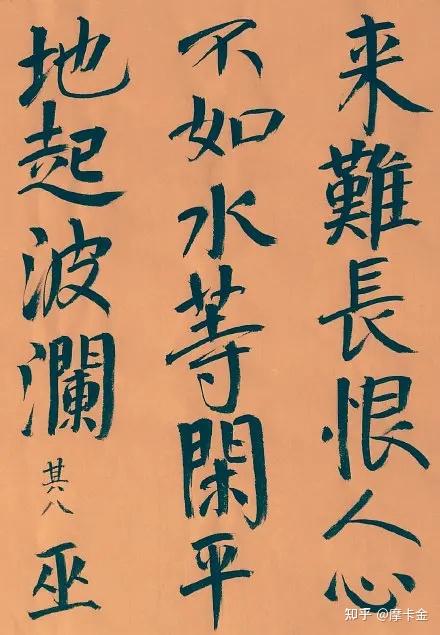 来難長恨人心
不如水等閑平
地起波瀾
其八
巫
知乎 @摩卡金